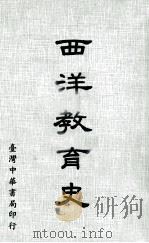 西洋教育史
臺灣中華書局印行